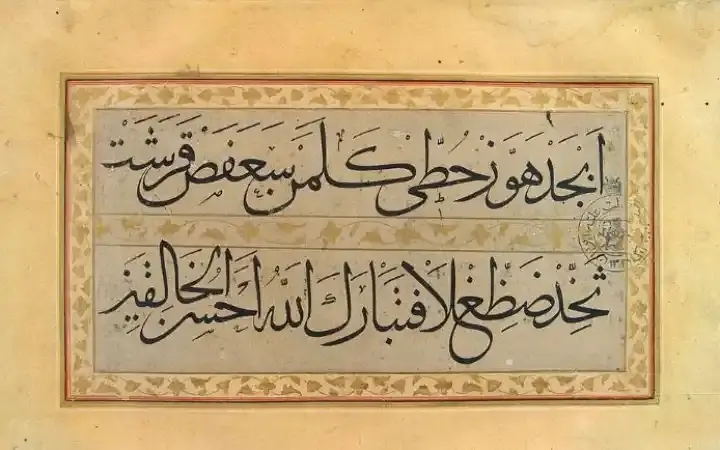 اَبْجَدْ هَوَّزْ حُطِّى كَلَمَنْ سَعَفَصْ قَرَشَتْ
ثَخَّذْ ضَظِّغْلَا فَتَبَارَكَ اللّٰهُ اَحْسَنُ الْخَالِقِينَ